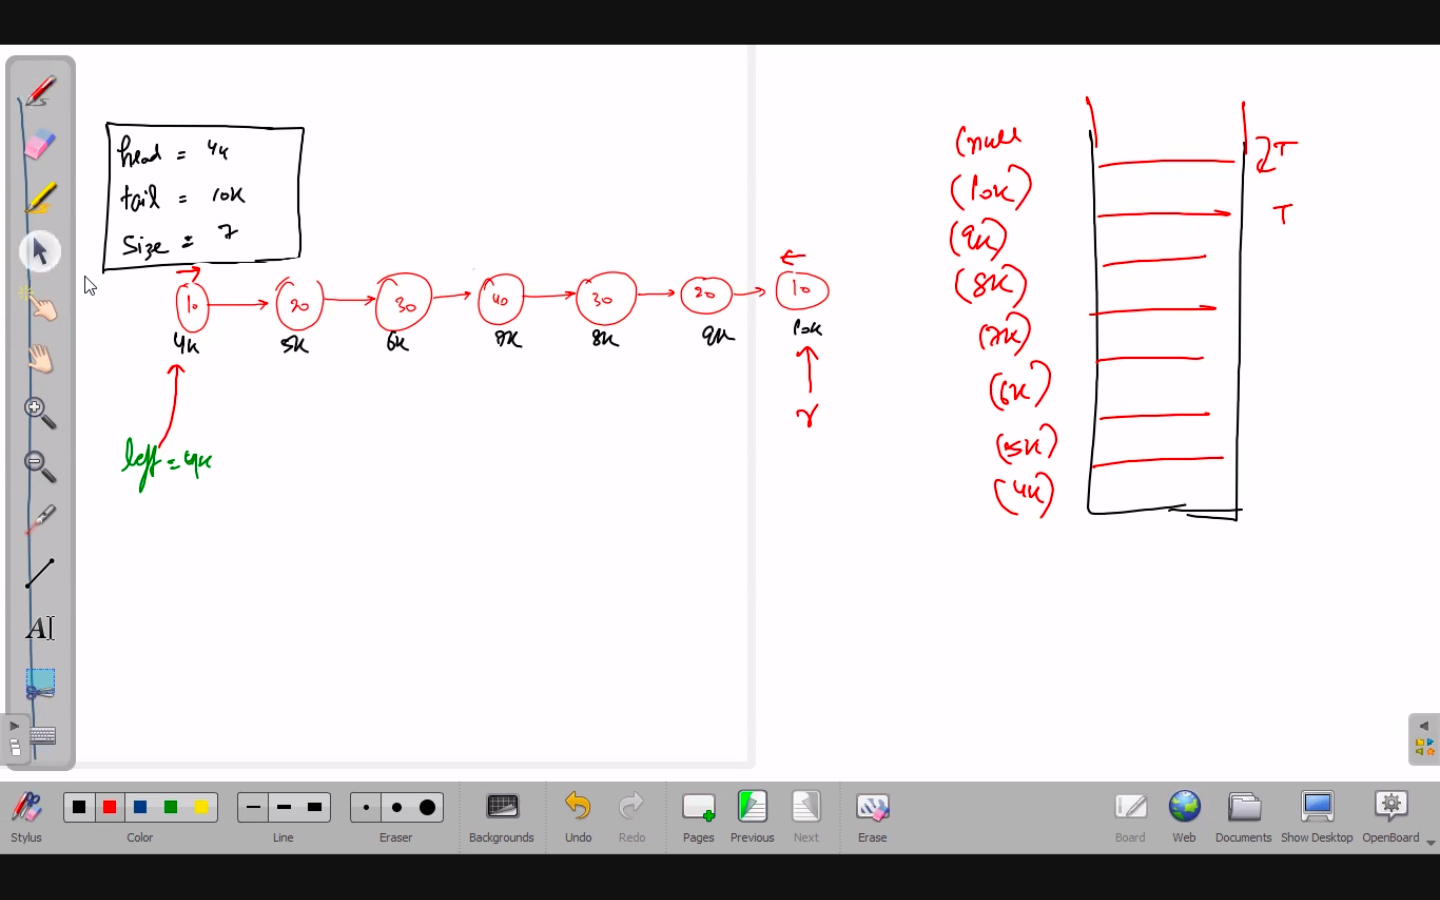 head = 4k
tail = 10k
size = 7
10 20 30 40 30 20 10
4k 5k 6k 7k 8k 9k 10k
left = 4k
r
(null
(10k)
(9k)
(8k)
(7k)
(6k)
(5k)
(4k)
T
T
AI
Stylus
Color
Line
Eraser
Backgrounds
Undo
Redo
Pages
Previous
Next
Erase
Board
Web
Documents
Show Desktop
OpenBoard